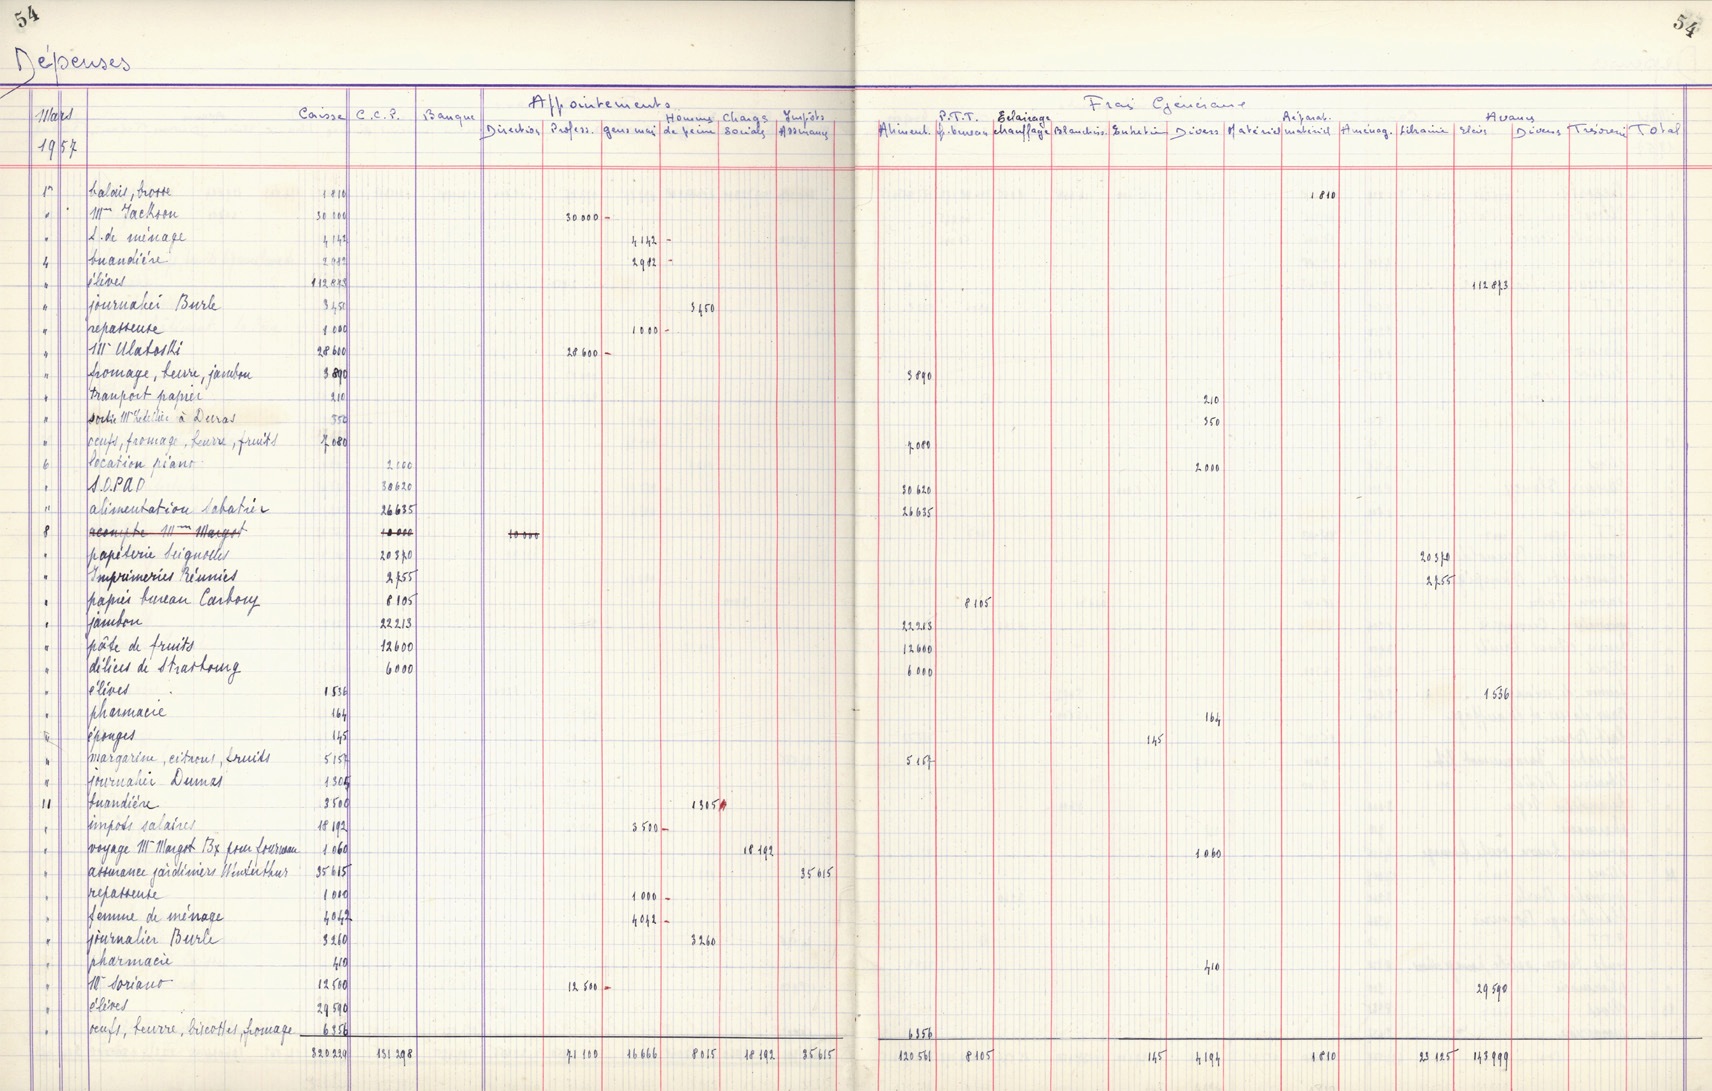 54
54
Dépenses
Appointements
Frais Généraux
Mars
1957
Caisse C.C.P. Banque Direction Profess. gens mai Homme de peine Charges Sociales Impôts Assurances Aliment. P.T.T. f. bureau Eclairage chauffage Blanchis. Entretien Divers Matériel Réparat. matériel Aménag. Librairie Avances Elèv. Divers Trésorerie Total
1er balais, brosse 1 810 1 810
" Mme Jackson 30 000 -
" f. de ménage 4 142 4 142 -
4 buandière 2 912 2 912 -
" élèves 112 873 112 873
" journalier Burle 3 450 3 450
" repasseuse 1 000 1 000 -
" 28 600 28 600 -
" fromage, beurre, jambon 3 890 3 890
" transport papier 210 210
" à Duras 350 350
" oeufs, fromage, beurre, fruits 7 080 7 080
6 location piano 2 000
" S.O.P.A.D 30 620 30 620
" alimentation Sabatier 26 635 26 635
8 acompte Mme Margot 10 000 10 000
" papèterie Seignolles 20 370 20 370
" Imprimeries Réunies 2 755 2 755
" papier bureau Carbony 8 105 8 105
" jambon 22 213 22 213
" pâte de fruits 12 600 12 600
" délices de Strasbourg 6 000 6 000
" élèves 1 536 1 536
" pharmacie 164 164
" éponges 145 145
" margarine, citrons, fruits 5 167 5 167
" journalier Dumas 1 305
11 buandière 3 500 1 305
" impots salaires 18 192 3 500 -
" voyage Mme Margot Bx pour 1 060 18 192 1 060
" assurance jardiniers Winterthur 35 615 35 615
" repasseuse 1 000 1 000 -
" femme de ménage 4 042 4 042 -
" journalier Burle 3 260 3 260
" pharmacie 410 410
" Mr Soriano 12 500 12 500 - 29 590
" élèves 29 590
" oeufs, beurre, biscottes, fromage 6 356 6 356
320 229 131 298 71 100 16 666 8 015 18 192 35 615 120 561 8 105 145 4 194 1 810 23 125 143 999